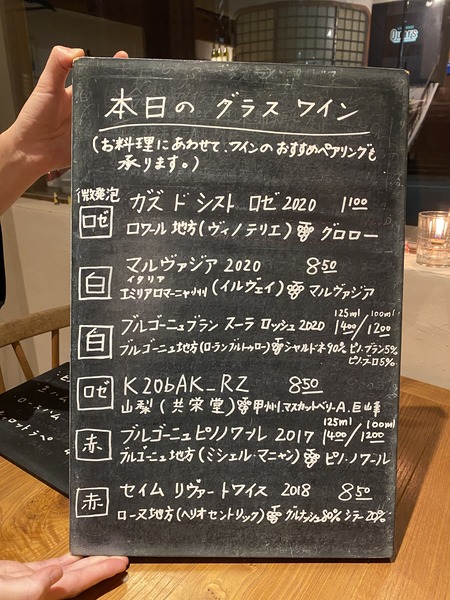 本日の グラス ワイン
(お料理にあわせて、ワインのおすすめペアリングも
承ります。)
微発泡
ロゼ ガズ ド シスト ロゼ 2020 1100
ロワール 地方 (ヴィノテリエ) グロロー
白 マルヴァジア 2020 850
イタリア
エミリアロマーニャ州 (イルヴェイ) マルヴァジア
125ml 100ml
白 ブルゴーニュブラン スーラ ロッシュ 2020 1400/1200
ブルゴーニュ地方(ローランブルトゥロー) シャルドネ90% ピノ・ブラン5%
ピノ・ブーロ5%
ロゼ K20bAK_RZ 850
山梨 (共栄堂) 甲州、マスカットベリーA、巨峰
125ml 100ml
赤 ブルゴーニュピノノワール 2017 1400/1200
ブルゴーニュ 地方 (ミシェル・マニャン) ピノ・ノワール
赤 セイム リヴァー トワイス 2018 850
ローヌ地方(ヘリオセントリック) グルナッシュ80% シラー20%